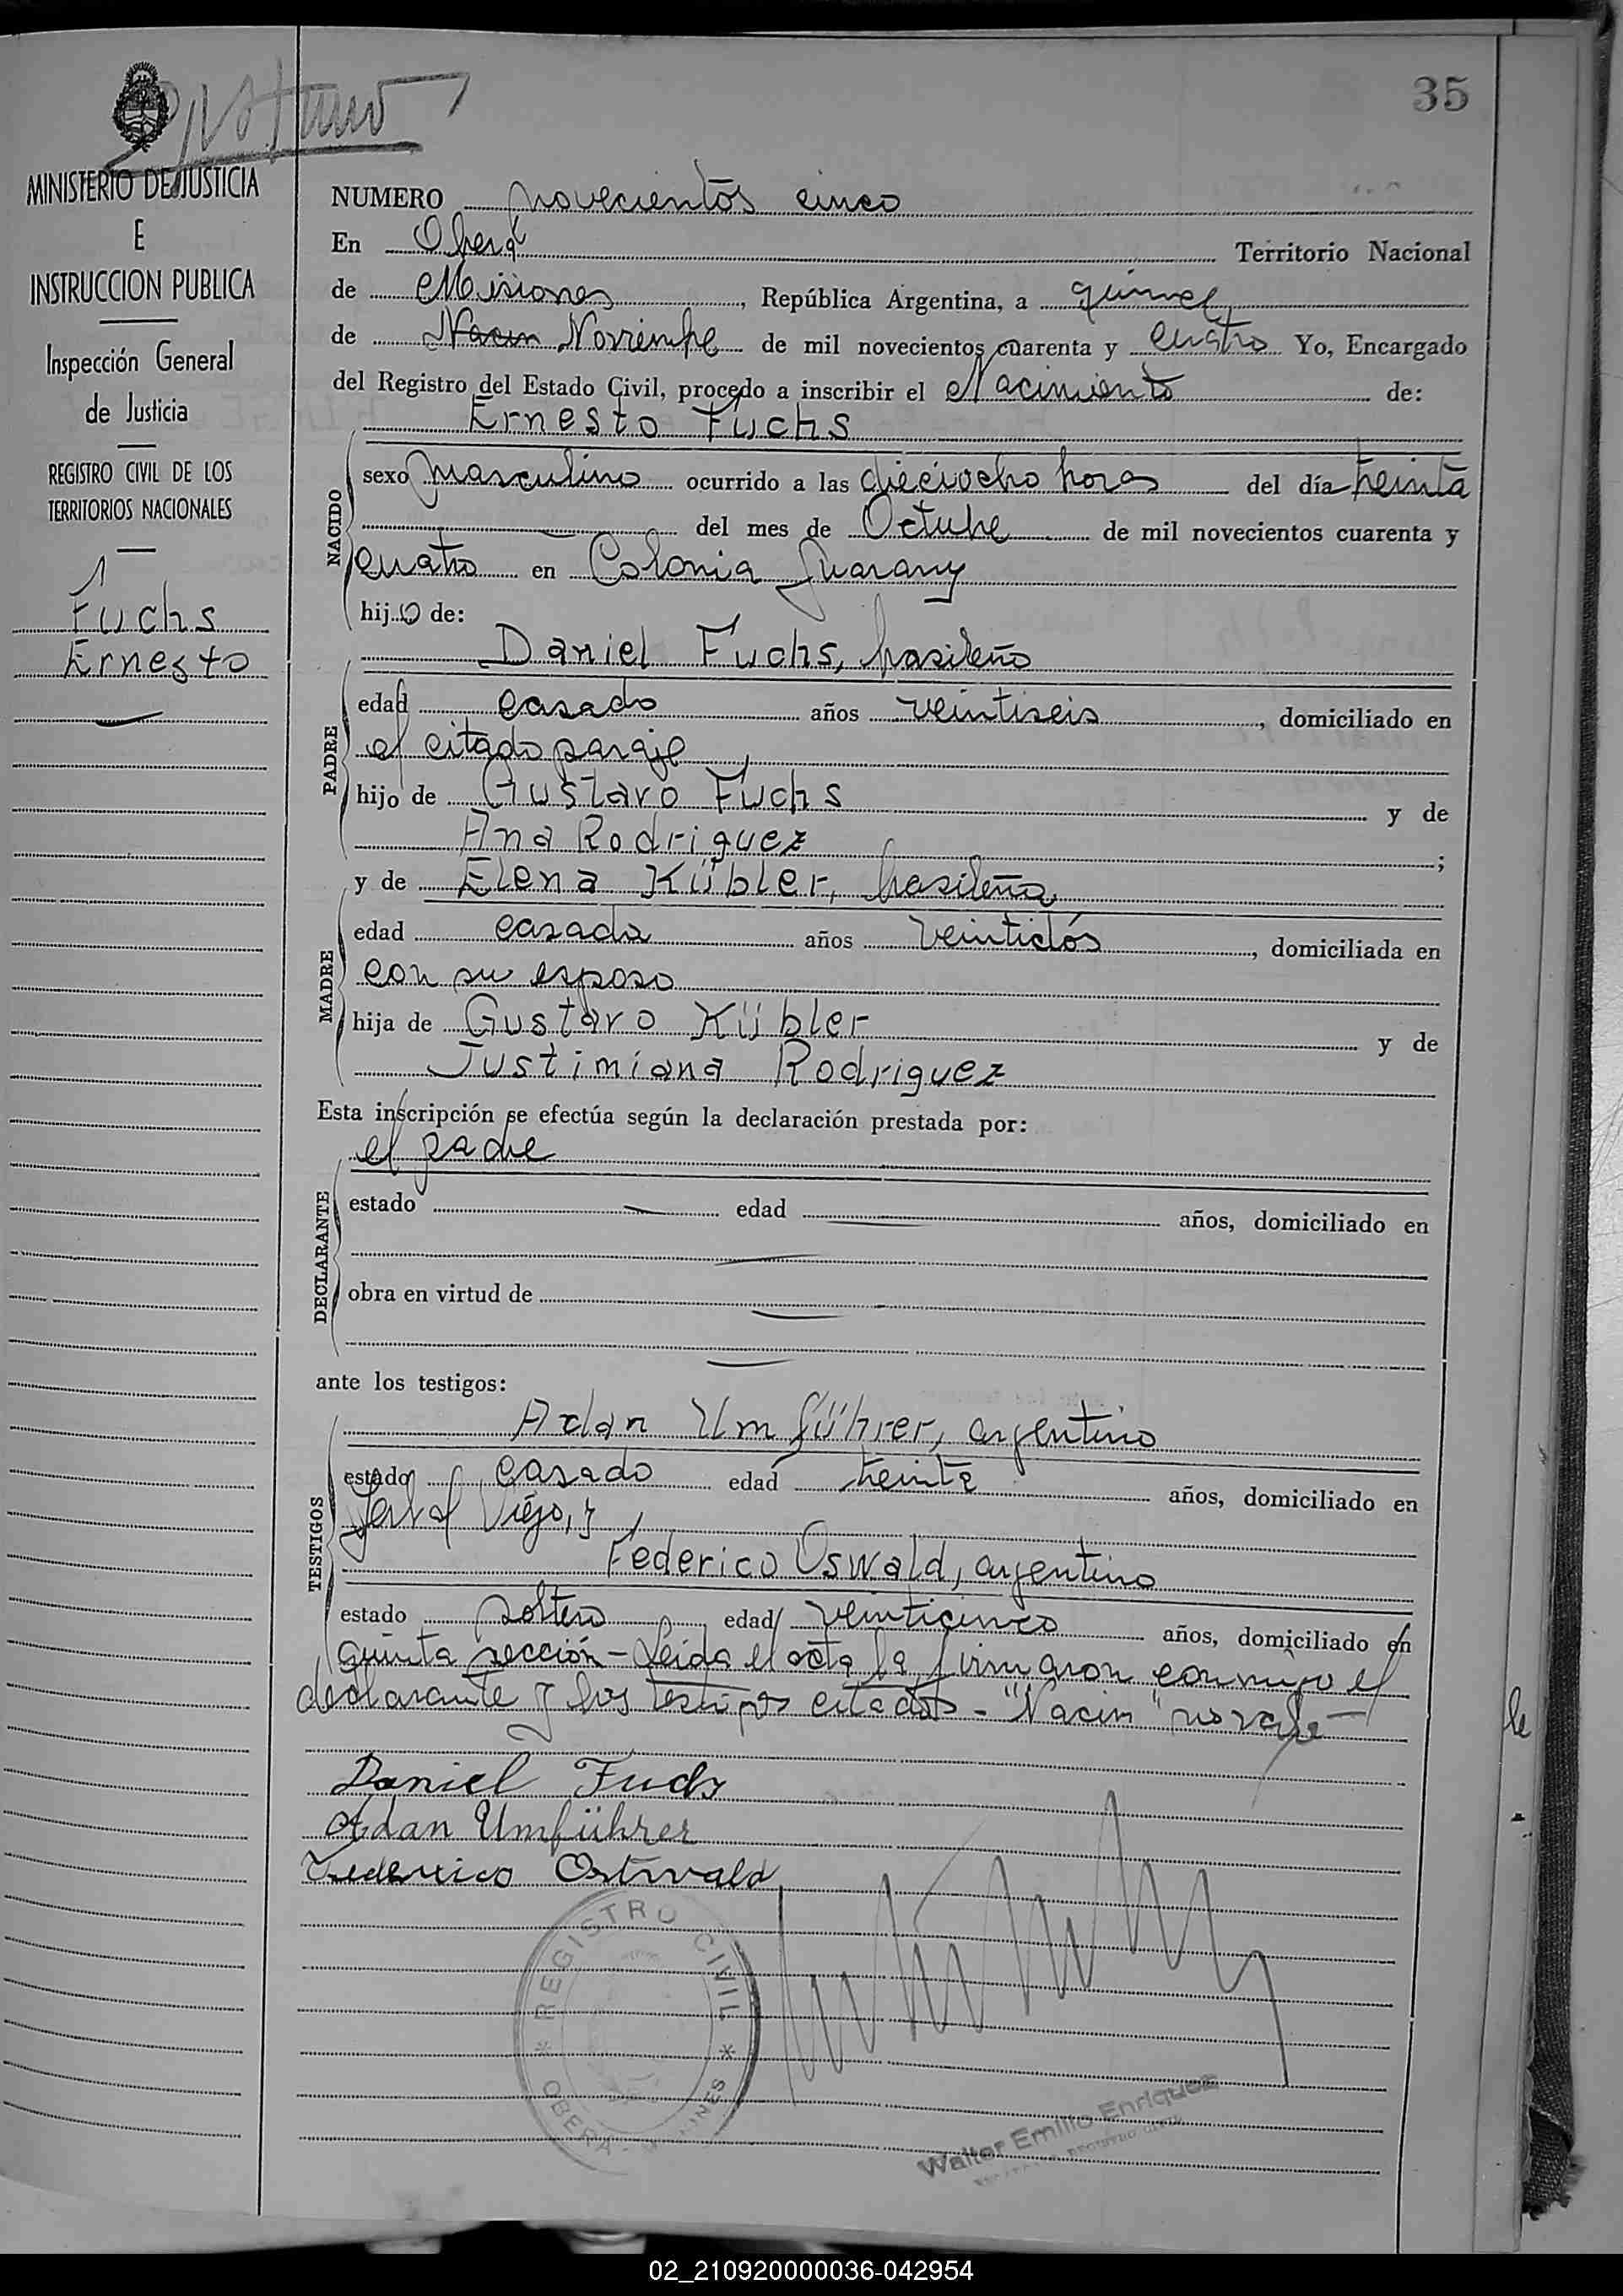 35
MINISTERIO DE JUSTICIA
E
INSTRUCCION PUBLICA
Inspección General
de Justicia
REGISTRO CIVIL DE LOS
TERRITORIOS NACIONALES
1
Fuchs
Ernesto
NUMERO novecientos cinco
En Oberá Territorio Nacional
de Misiones, República Argentina, a quince
de Nacim Noviembre de mil novecientos cuarenta y cuatro Yo, Encargado
del Registro del Estado Civil, procedo a inscribir el Nacimiento de:
Ernesto Fuchs
NACIDO
sexo masculino ocurrido a las dieciocho horas del día treinta
del mes de Octubre de mil novecientos cuarenta y
cuatro en Colonia Guarany
hijo de:
Daniel Fuchs, brasileño
PADRE
edad casado años veintiseis, domiciliado en
el citado paraje
hijo de Gustavo Fuchs y de
Ana Rodriguez;
y de Elena Kübler, brasileña
MADRE
edad casada años veintidós, domiciliada en
con su esposo
hija de Gustavo Kübler y de
Justimiana Rodriguez
Esta inscripción se efectúa según la declaración prestada por:
el padre
DECLARANTE
estado edad años, domiciliado en
obra en virtud de
ante los testigos:
Adan Umführer, argentino
TESTIGOS
estado casado edad treinta años, domiciliado en
Yerbal Viejo, y
Federico Oswald, argentino
estado soltero edad veinticinco años, domiciliado en
quinta sección - Leida el acta la firmaron conmigo el
declarante y los testigos citados - "Nacim" no vale -
Daniel Fuchs
Adan Umführer
Federico Ostwald
REGISTRO CIVIL
OBERÁ - MISIONES
Walter Emilio Enriquez
02_210920000036-042954